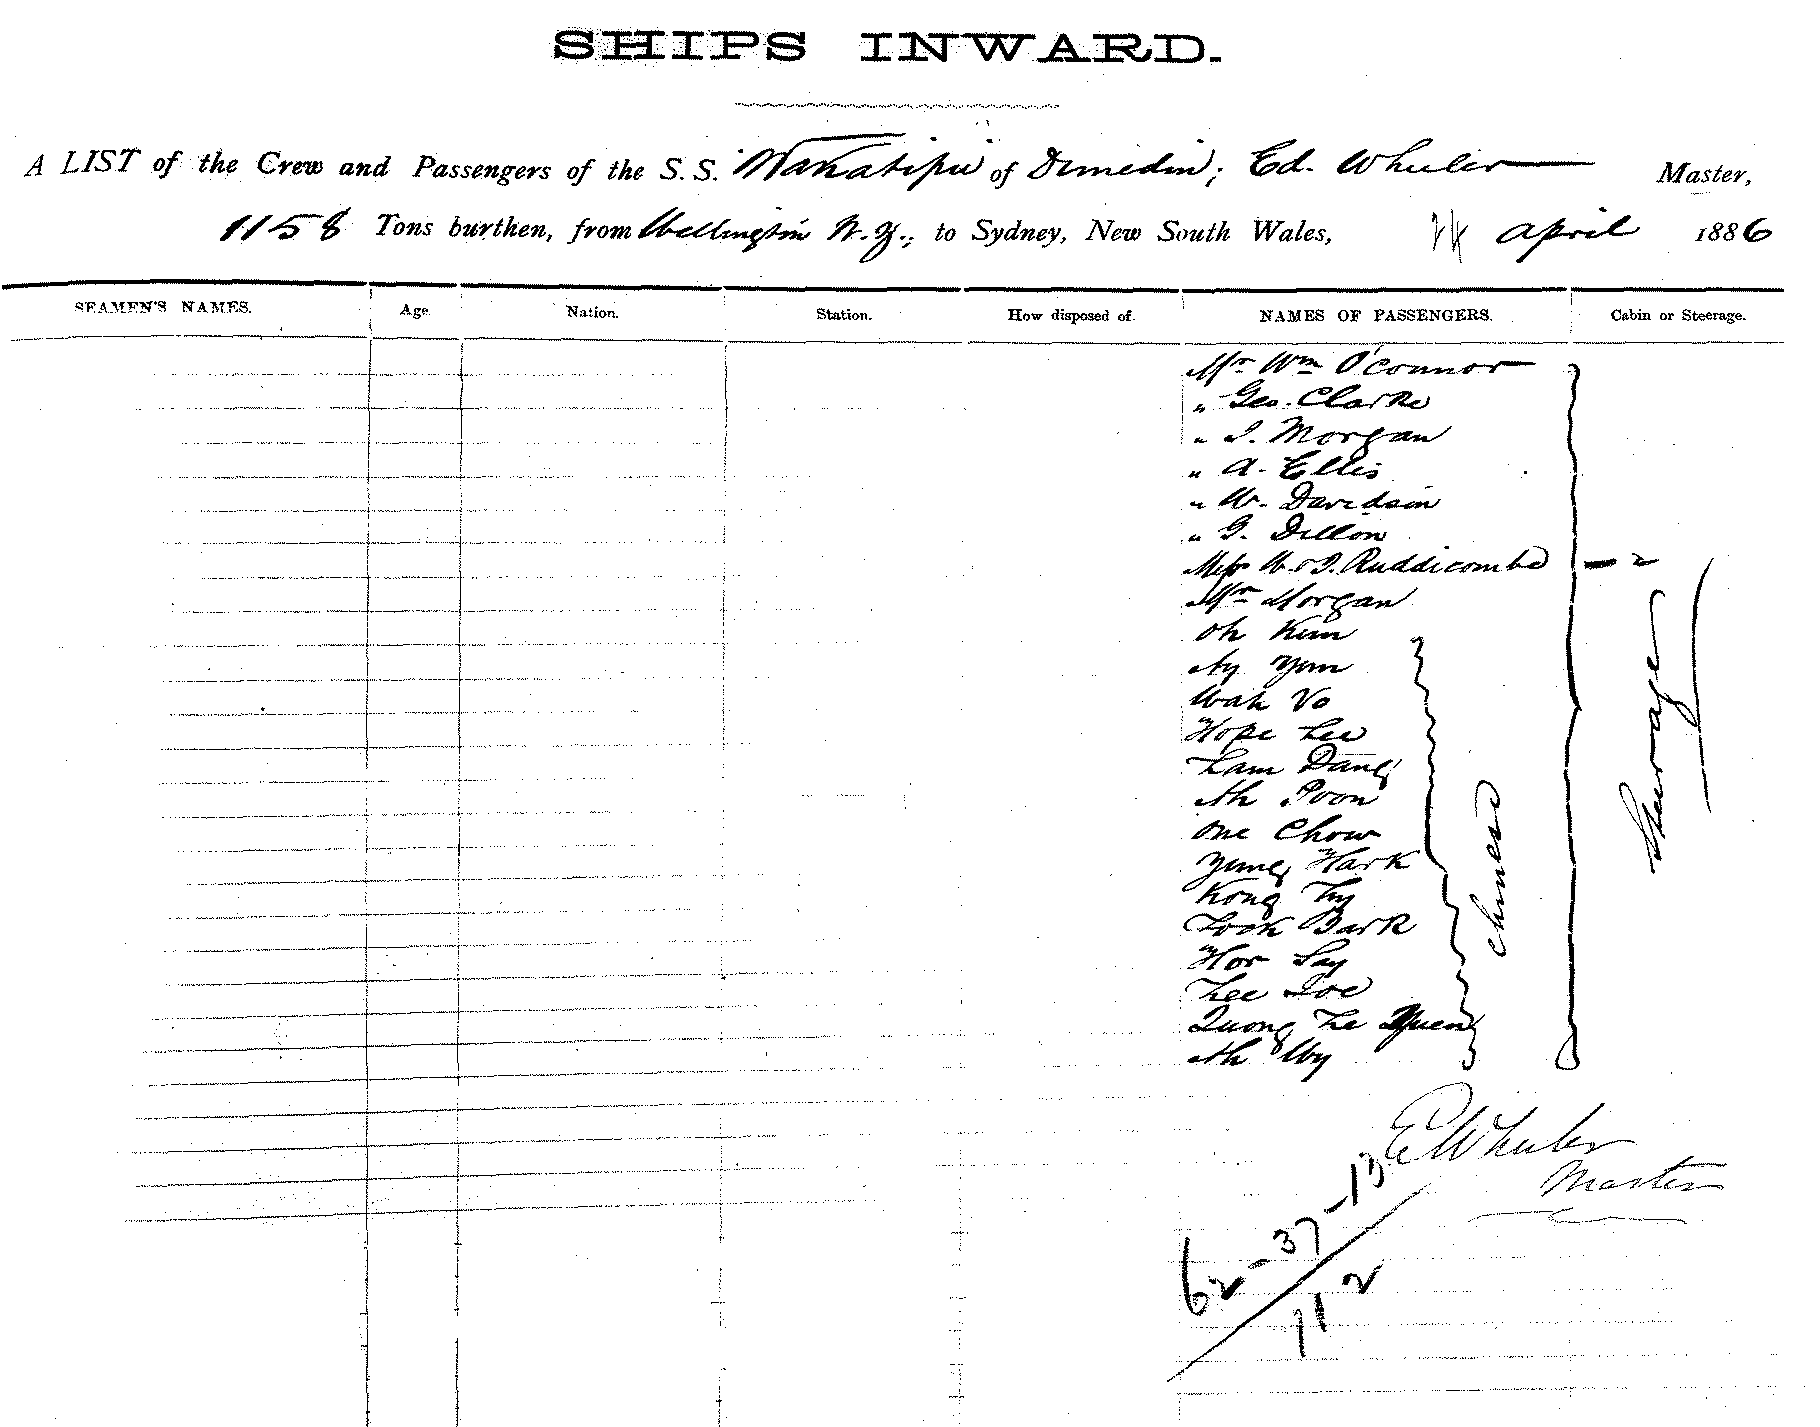 SHIPS INWARD.
A LIST of the Crew and Passengers of the S.S. Wakatipu of Dunedin, Ed. Wheeler Master,
1158 Tons burthen, from Wellington N.Z., to Sydney, New South Wales, April 1886
SEAMEN'S NAMES. Age Nation. Station. How disposed of. NAMES OF PASSENGERS. Cabin or Steerage.
Mr Wm O'Connor
" Geo. Clarke
" J. Morgan
" A. Ellis
" W. Davidson
" G. Dillon
W. & J. Ruddicombe - 2
Mr Morgan
Oh Kum
Ay Yum
Wah Vo
Hope Lee
Lam Dang
Ah Poon
One Chow
Yung Hark
Kong Thy
Look Bark
Hor Say
Lee Joe
Quong Le Yuen
Ah Wy
Chinese
Steerage
E Wheeler
Master
62-37-13
112